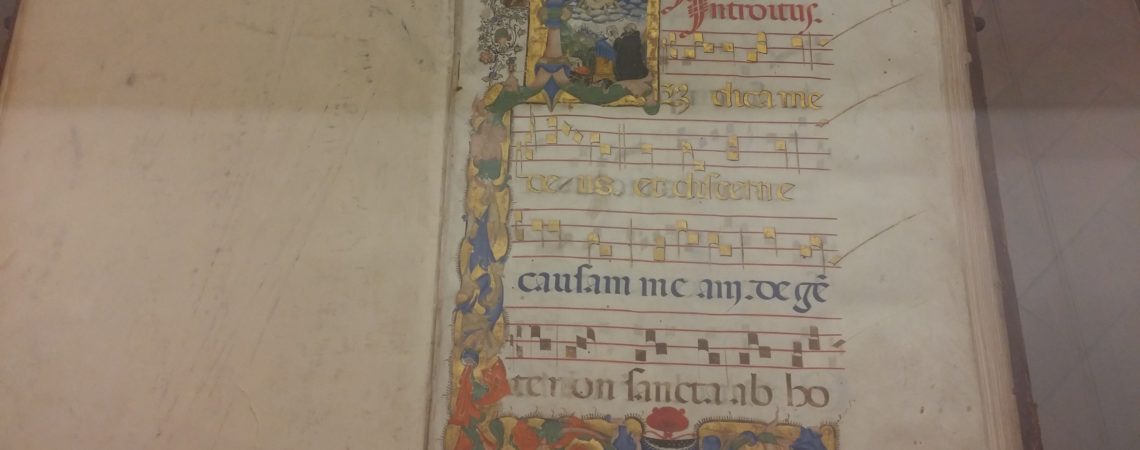 Introitus.
IU dica me
de us. et discerne
causam me am. de gē
te non sancta ab ho